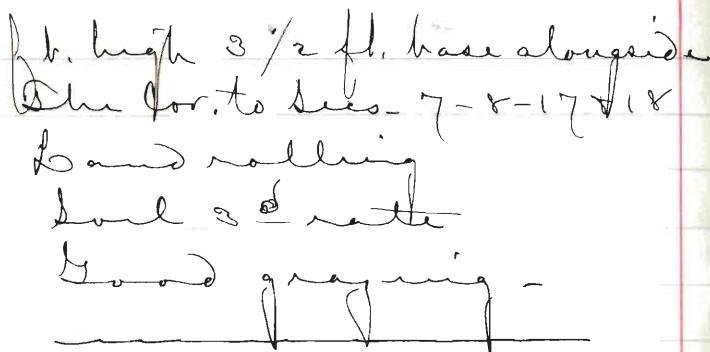 ft. high 3 1/2 ft. base alongside
The Cor. to Secs - 7 - 8 - 17 & 18
Land rolling
Soil 3d rate
Good grazing -